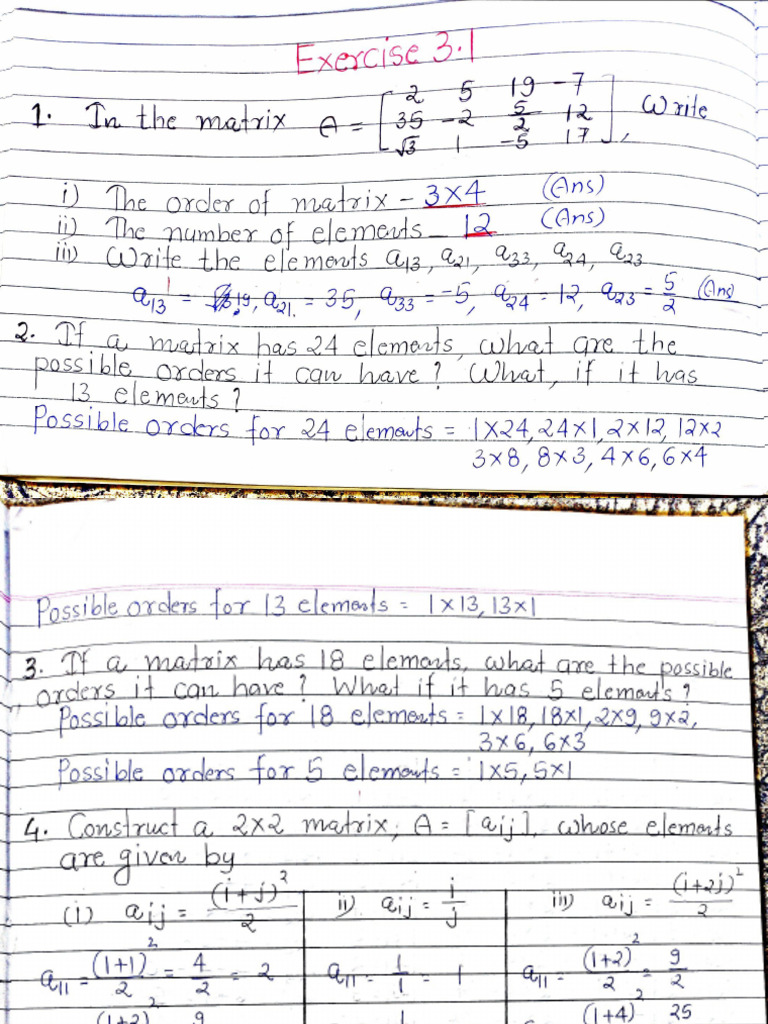 Exercise 3.1
1. In the matrix A = [2 5 19 -7
35 -2 5/2 12
√3 1 -5 17], Write
i) The order of matrix - 3×4 (Ans)
ii) The number of elements - 12 (Ans)
iii) Write the elements a13, a21, a33, a24, a23
a13 = 19, a21 = 35, a33 = -5, a24 = 12, a23 = 5/2 (Ans)
2. If a matrix has 24 elements, what are the
possible orders it can have? What, if it has
13 elements?
Possible orders for 24 elements = 1×24, 24×1, 2×12, 12×2
3×8, 8×3, 4×6, 6×4
Possible orders for 13 elements = 1×13, 13×1
3. If a matrix has 18 elements, what are the possible
orders it can have? What if it has 5 elements?
Possible orders for 18 elements = 1×18, 18×1, 2×9, 9×2,
3×6, 6×3
Possible orders for 5 elements = 1×5, 5×1
4. Construct a 2×2 matrix, A = [aij], whose elements
are given by
(i) aij = (i+j)²/2 ii) aij = i/j iii) aij = (i+2j)²/2
a11 = (1+1)²/2 = 4/2 = 2 a11 = 1/1 = 1 a11 = (1+2)²/2 = 9/2
(1+2)² 9 1 (1+4)² 25